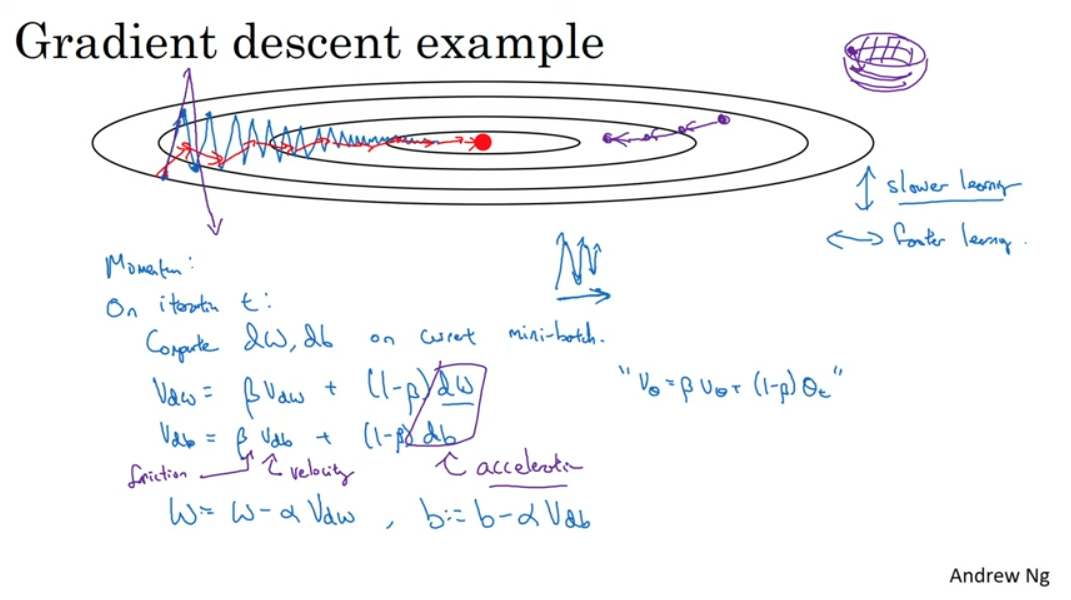 Gradient descent example
↕ slower learning
↔ faster learning.
Momentum:
On iteration t:
Compute dW, db on current mini-batch.
Vdw = β Vdw + (1-β) dW
"Vθ = β Vθ + (1-β) θt"
Vdb = β Vdb + (1-β) db
friction velocity acceleration
W := W - α Vdw , b := b - α Vdb
Andrew Ng